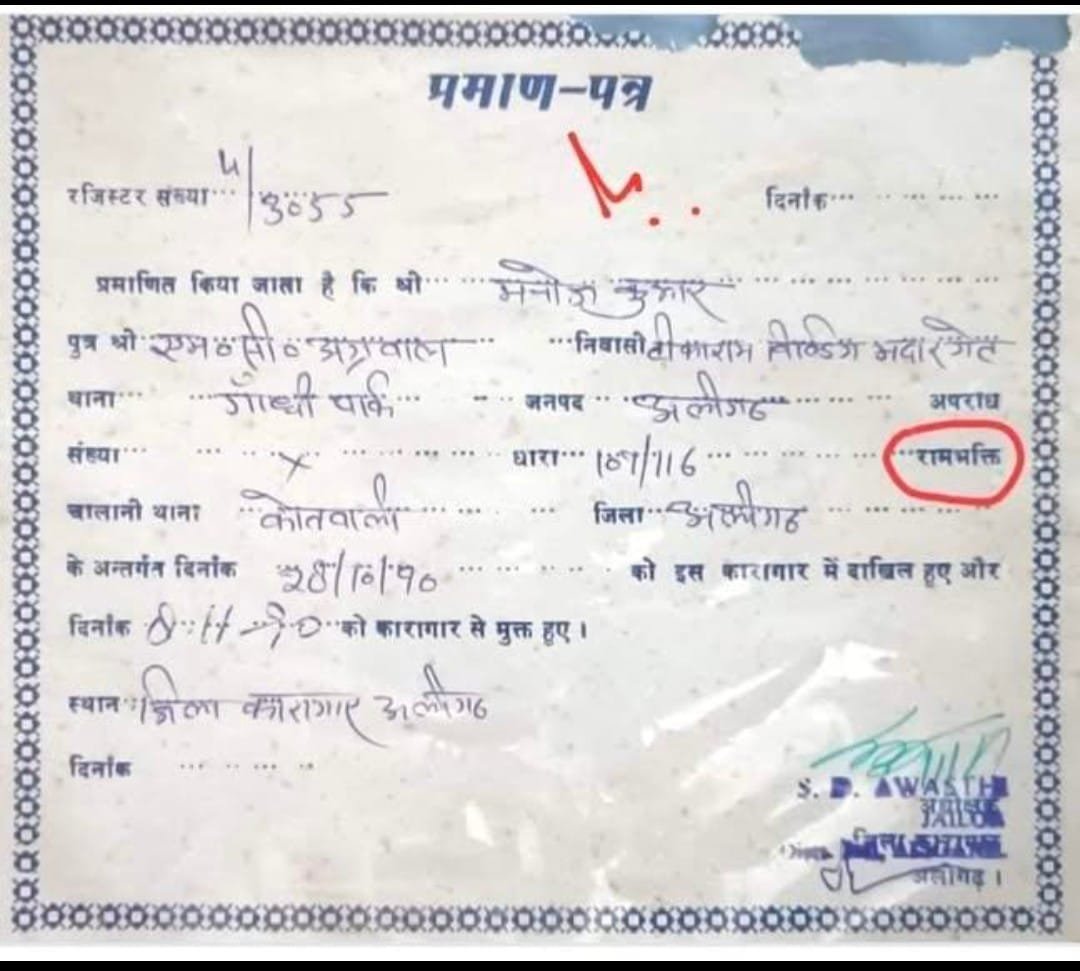 प्रमाण-पत्र
रजिस्टर संख्या 5/3055 दिनाँक
प्रमाणित किया जाता है कि श्री मनोज कुमार
पुत्र श्री एम॰ सी॰ अग्रवाल निवासी टीकाराम बिल्डिंग मदारगेट
थाना गाँधी पार्क जनपद अलीगढ अपराध
संख्या × धारा 107/116 रामभक्ति
चालानी थाना कोतवाली जिला अलीगढ
के अन्तर्गत दिनाँक 28/10/90 को इस कारागार में दाखिल हुए और
दिनाँक 8-11-90 को कारागार से मुक्त हुए।
स्थान जिला कारागार अलीगढ
दिनाँक
S. D. AWASTHI
JAILOR
अलीगढ़।